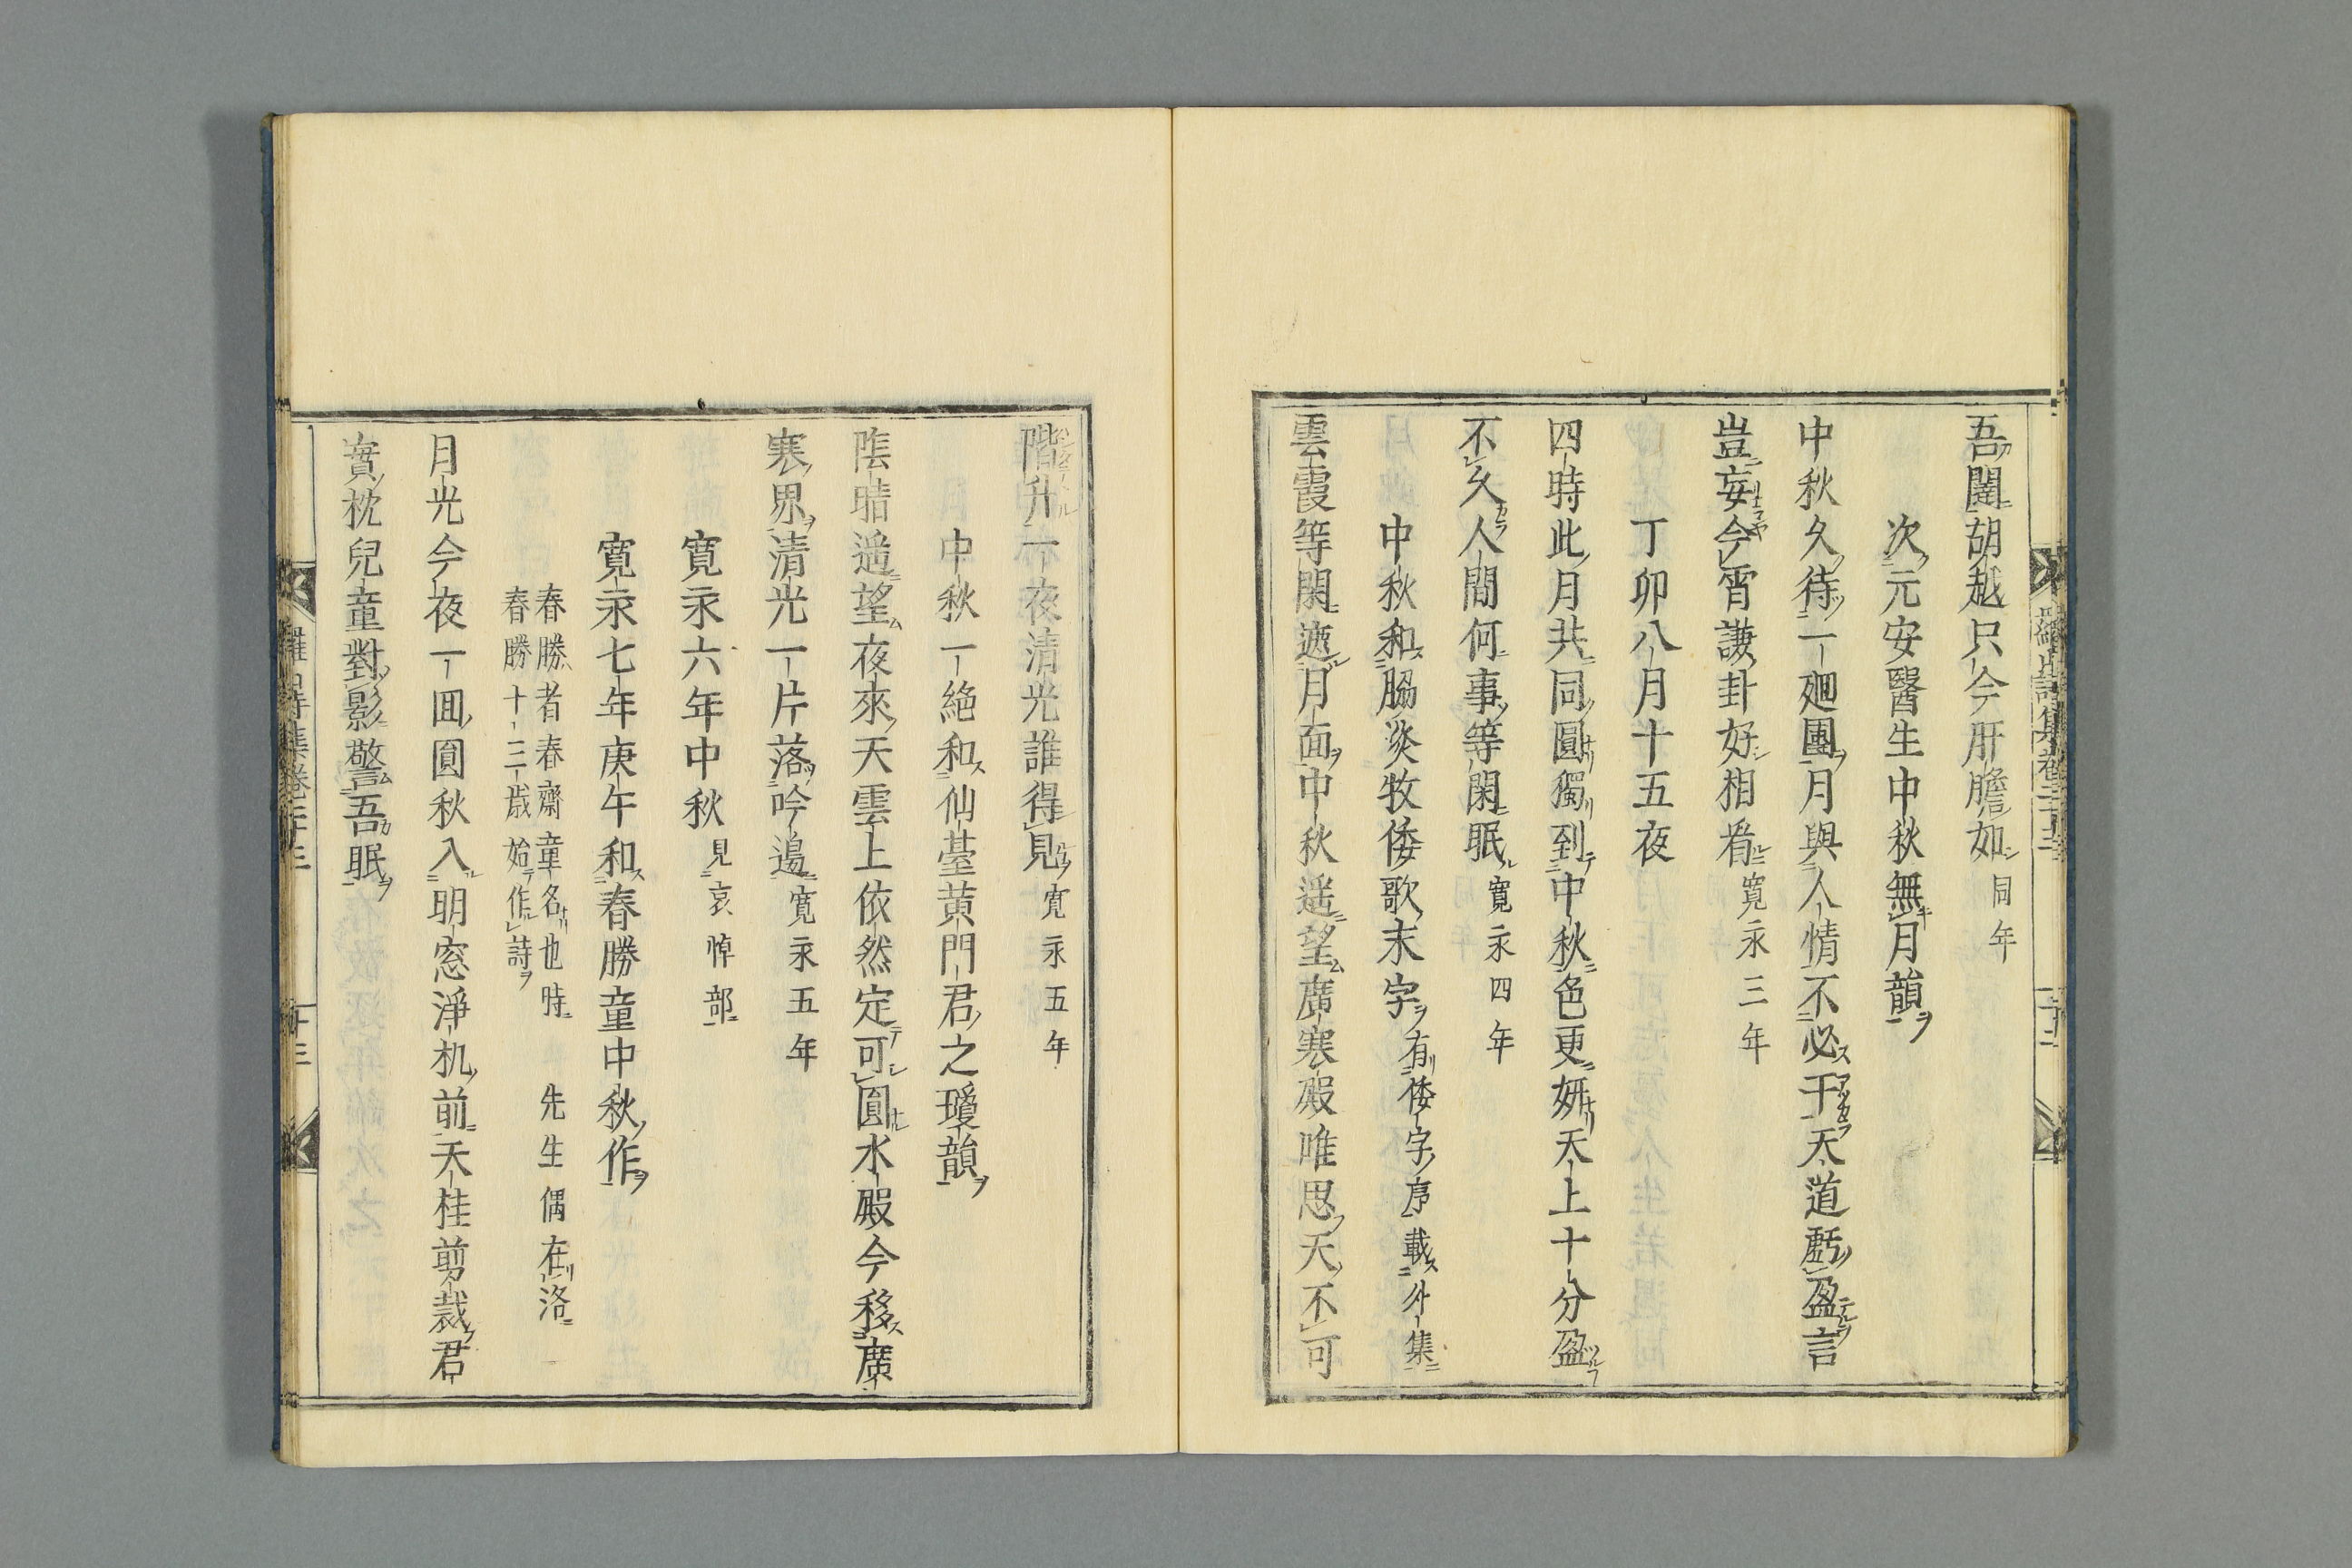 吾闘胡越只今肝膽如 同年
次元安醫生中秋無月韻
中秋久待一廻團月與人情不必干天道虧盈言
豈妄今宵謙卦好相看 寛永三年
丁卯八月十五夜
四時此月共同圓獨到中秋色更妍天上十分盈
不久人間何事等閑眠 寛永四年
中秋和脇淡牧倭歌末字 有倭字序載外集
雲霞等閑遮月面中秋遥望廣寒殿唯思天不可
階升一夜清光誰得見 寛永五年
中秋一絶和仙臺黄門君之瓊韻
陰晴遥望夜來天雲上依然定可圓水殿今移廣
寒界清光一片落吟邉 寛永五年
寛永六年中秋 見哀悼部
寛永七年庚午和春勝童中秋作
春勝者春齋童名也時先生偶在洛
春勝十三歳始作詩
月光今夜一囬圓秋入明窓淨机前天桂剪裁君
實枕兒童對影警吾眠